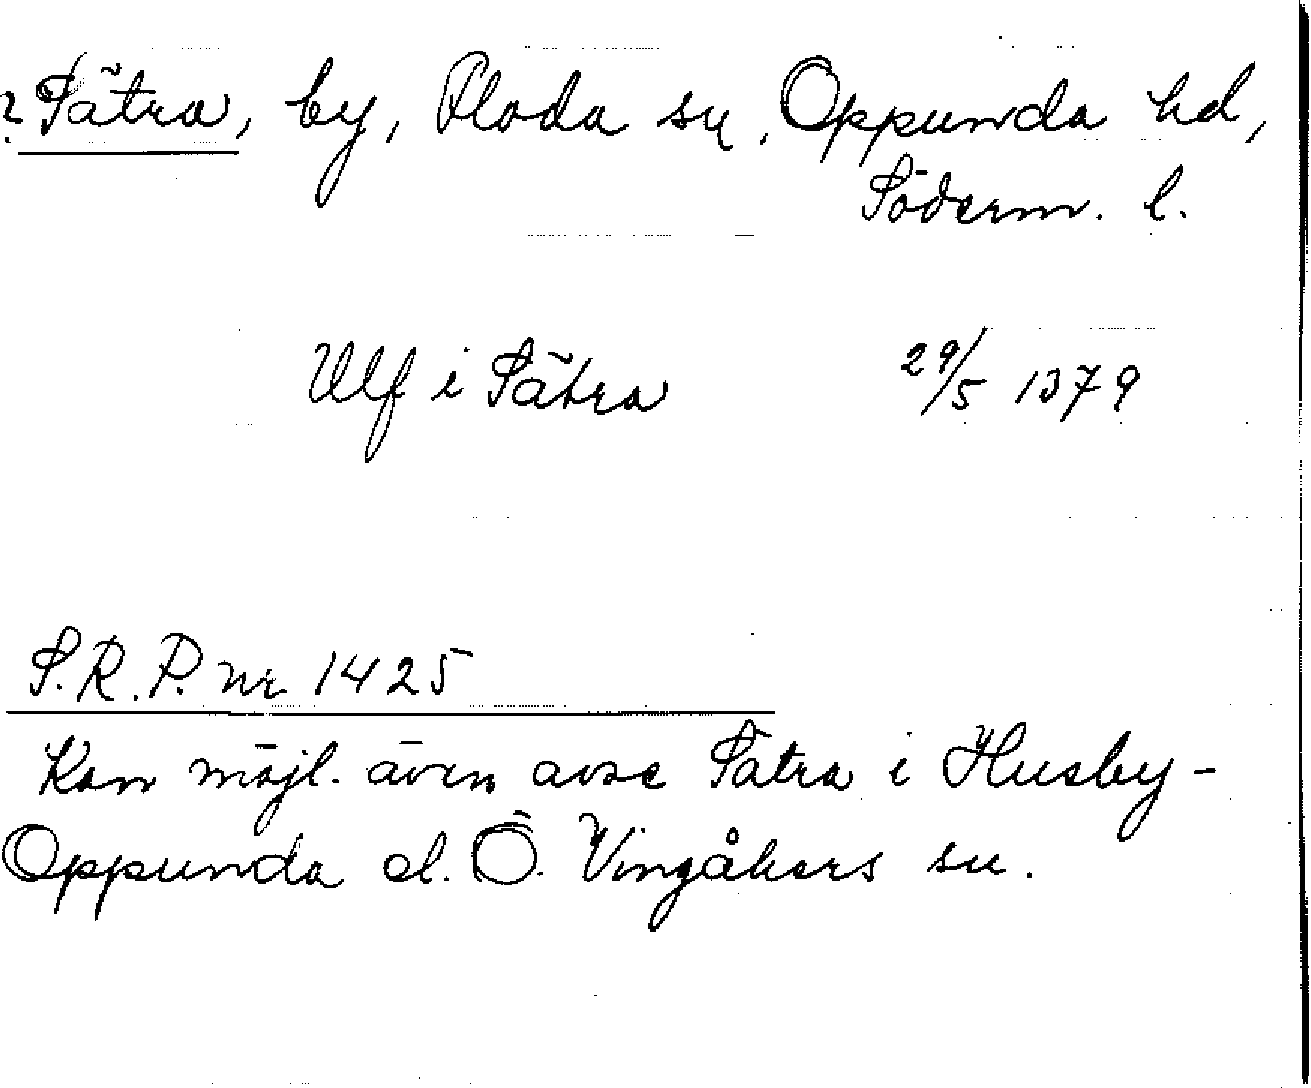 ? Sätra, by, Floda sn, Oppunda hd,
Söderm. l.
Ulf i Sätra 29/5 1379
S.R.P. nr 1425
Kan möjl. även avse Sätra i Husby-
Oppunda el. Ö. Vingåkers sn.